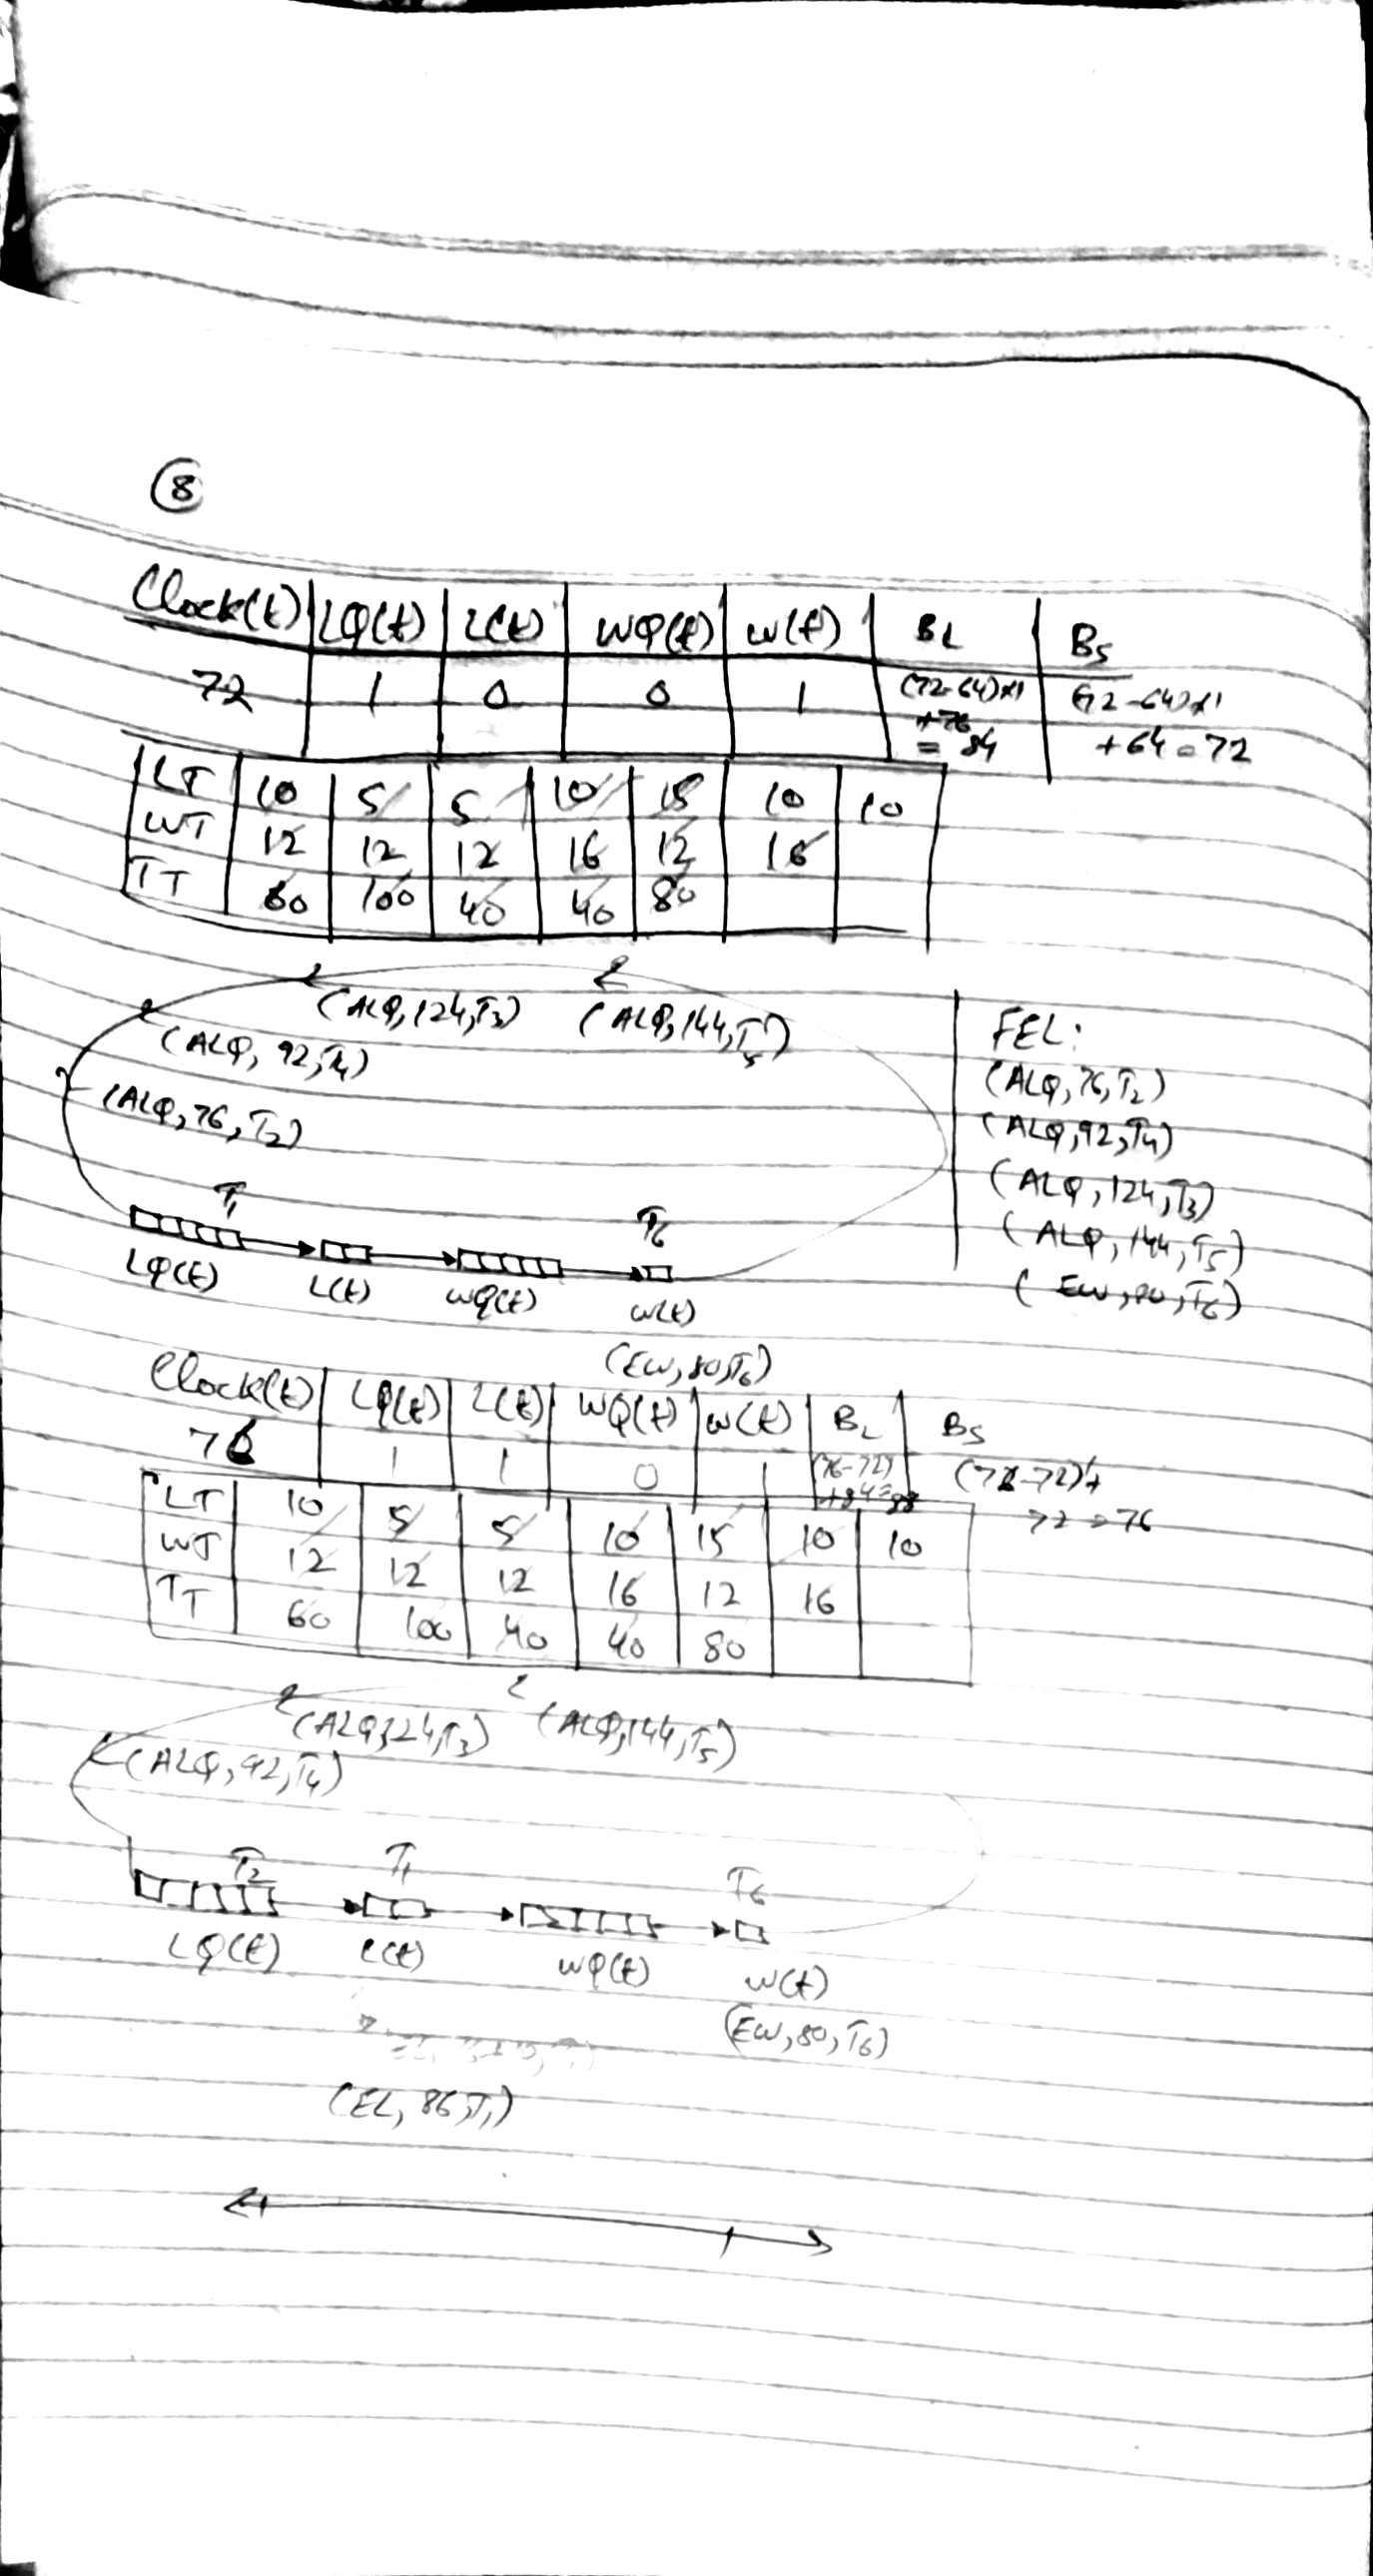 8
Clock(t) LQ(t) L(t) WQ(t) W(t) BL BS
72 1 0 0 1 (72-64)x1 +76 = 84 (72-64)x1 +64=72
LT 10 5 5 10 15 10 10
WT 12 12 12 16 12 16
TT 60 100 40 40 80
(ALQ,124,T3) (ALQ,144,T5)
(ALQ, 92,T4)
(ALQ,76,T2)
FEL:
(ALQ,76,T2)
(ALQ,92,T4)
(ALQ,124,T3)
(ALQ,144,T5)
(EW,80,T6)
T1 T6
LQ(t) L(t) WQ(t) W(t)
(EW,80,T6)
Clock(t) LQ(t) L(t) WQ(t) W(t) BL BS
76 1 1 0 1 (76-72) +84=88 (76-72)+ 72=76
LT 10 5 5 10 15 10 10
WT 12 12 12 16 12 16
TT 60 100 40 40 80
(ALQ,124,T3) (ALQ,144,T5)
(ALQ,92,T4)
T2 T1 T6
LQ(t) L(t) WQ(t) W(t)
(EW,80,T6)
(EL,86,T1)